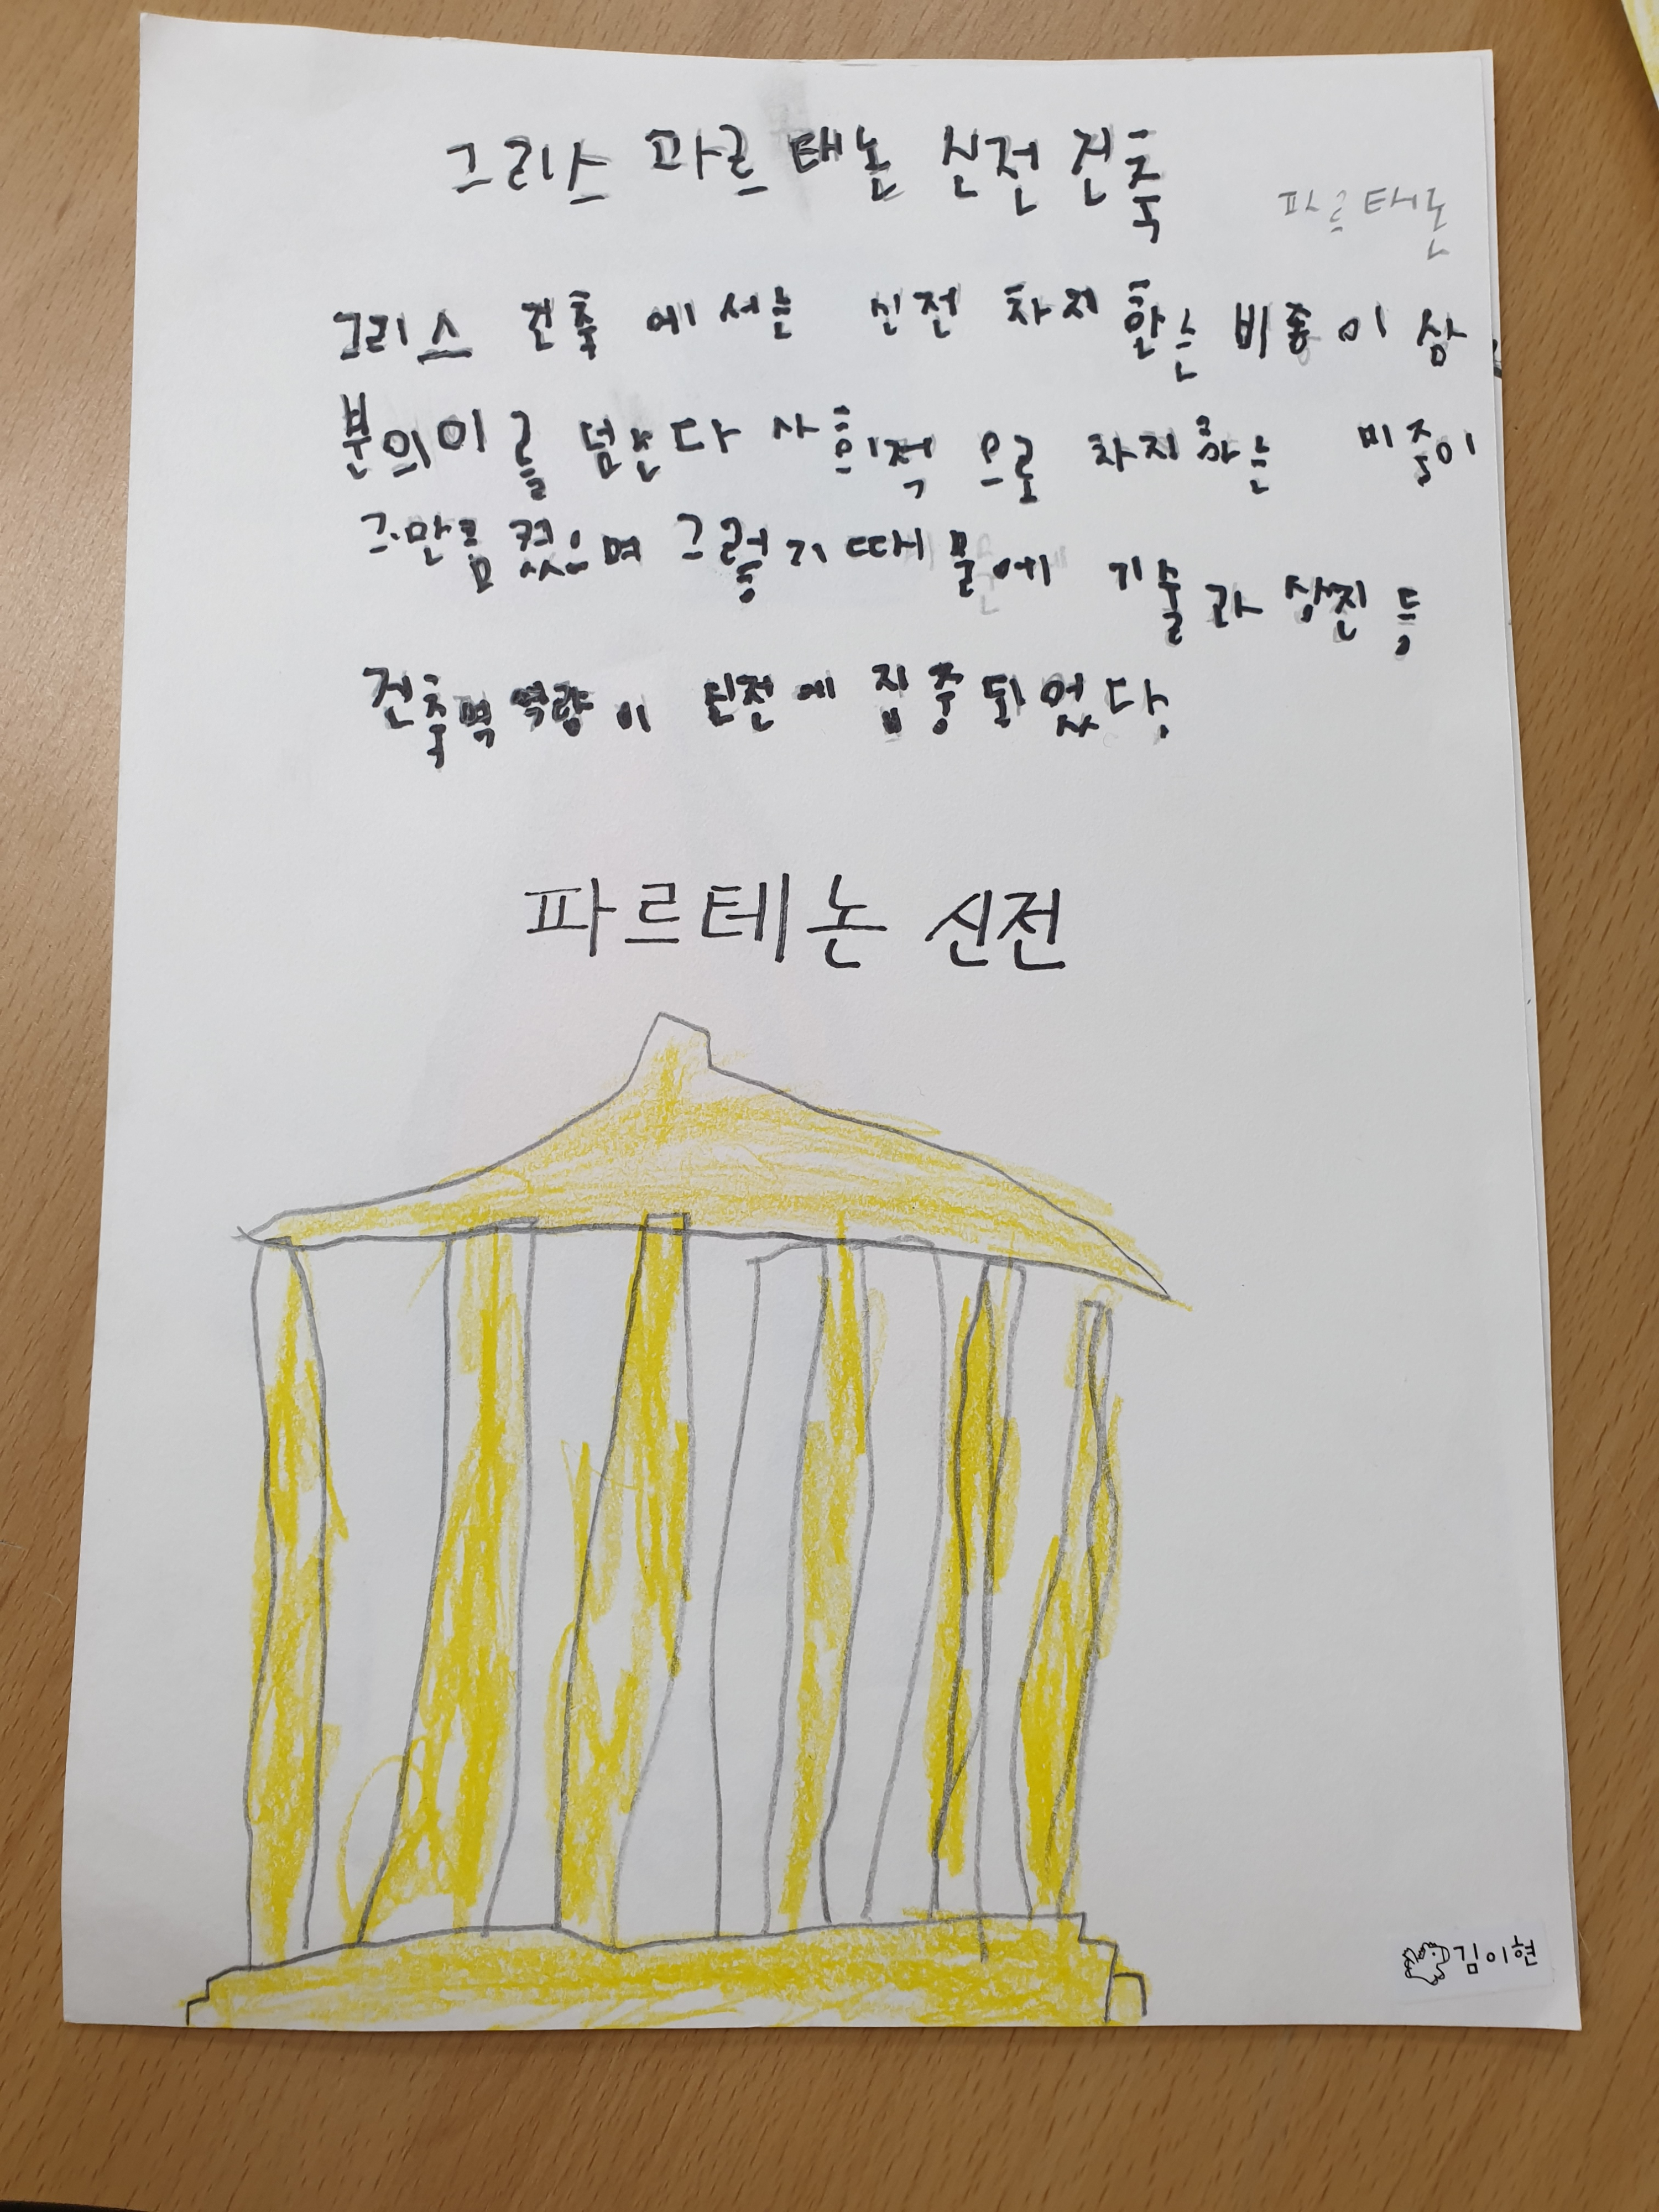 그리스 파르태논 신전 건축
파르태논
그리스 건축에서는 신전 차지한는 비중이 삼
분의이를 넘는다 사회적으로 차지하는 비중이
그만큼 컸으며 그렇기 때문에 기술과 상진등
건축벽 역량이 신전에 집중되었다.
파르테논 신전
김이현